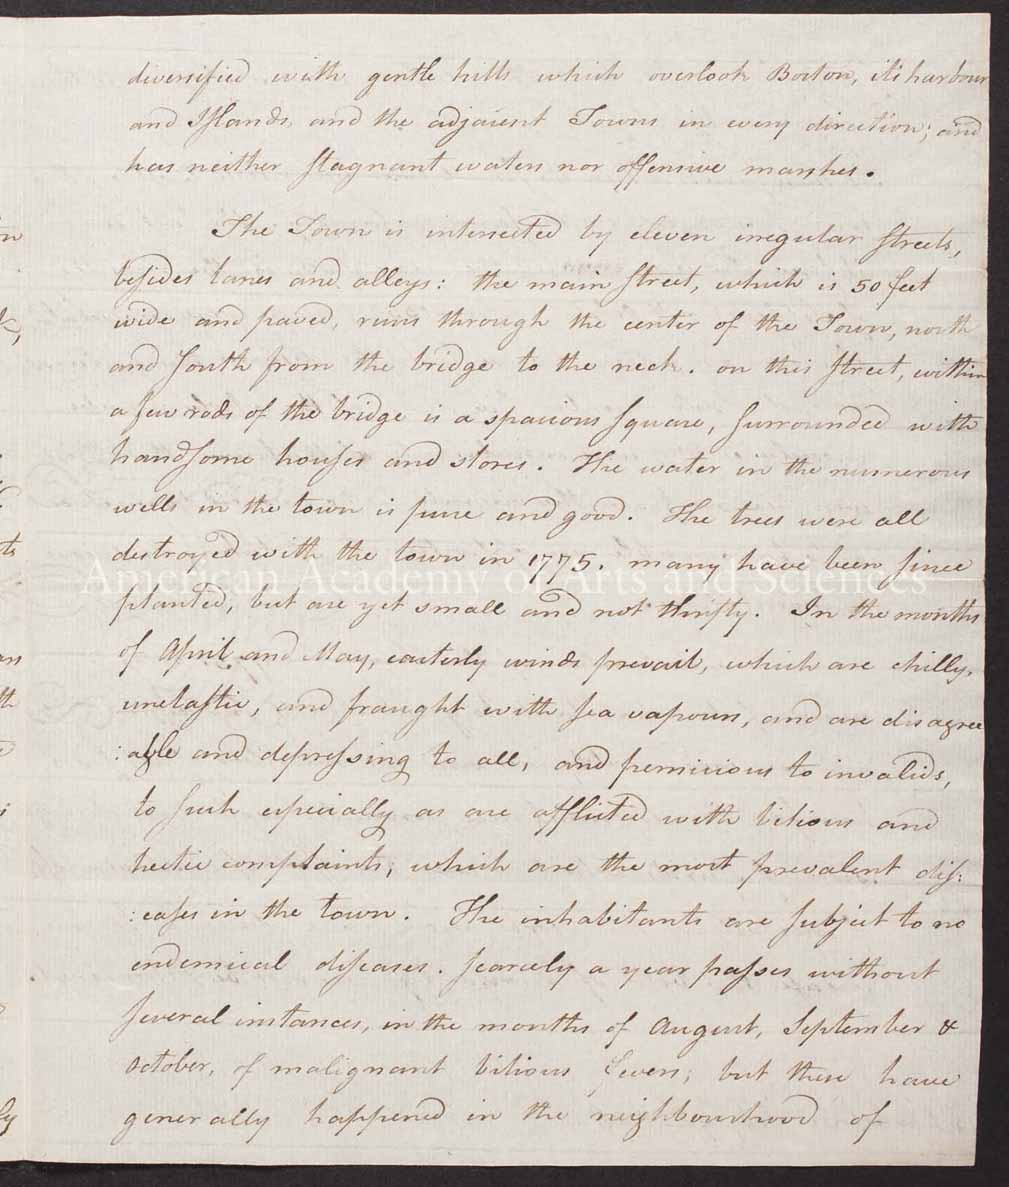 diversified with gentle hills which overlook Boston, its harbour
and Islands, and the adjacent Towns in every direction; and
has neither stagnant waters nor offensive marshes.
The Town is intersected by eleven irregular streets,
besides lanes and alleys: the main street, which is 50 feet
wide and paved, runs through the center of the Town, north
and south from the bridge to the neck. on this street, within
a few rods of the bridge is a spacious square, surrounded with
handsome houses and stores. The water in the numerous
wells in the town is pure and good. The trees were all
destroyed with the town in 1775. many have been since
American Academy of Arts and Sciences
planted, but are yet small and not thrifty. In the months
of April and May, easterly winds prevail, which are chilly,
unelastic, and fraught with sea vapours, and are disagree
:able and depressing to all, and pernicious to invalids,
to such especially as are afflicted with bilious and
hectic complaints, which are the most prevalent dis:
:eases in the town. The inhabitants are subject to no
endemical diseases. scarcely a year passes without
several instances, in the months of August, September &
October, of malignant bilious fevers; but these have
generally happened in the neighbourhood of